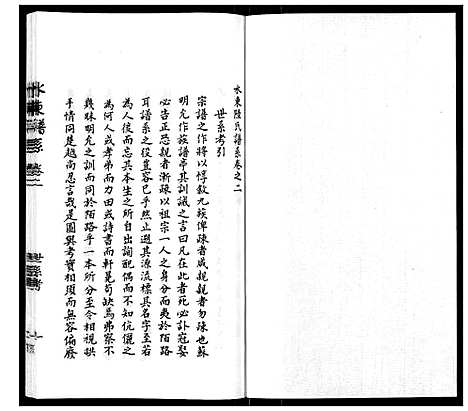 水東陸氏譜系卷之二
世系考引
宗譜之作將以惇敘九族俾疎者咸親親者勿疎也蘇
明允作族譜亭其訓誡之言曰凡在此者死必訃冠娶
必告正恐親者漸疎以祖宗一人之身分而為陌路
耳譜系之役豈容已乎然止遡其源流標其名字至若
為人後而忘其本生之所自出配偶而不知伉儷之
為何人或孝弟而力田或詩書而軒冕苟缺焉弗察不
幾昧明允之訓而同於陌路乎一本所分至令相視
手情同楚越而忍言哉是圖與考實相須而無容偏廢
水東譜系 卷二
世系考
一